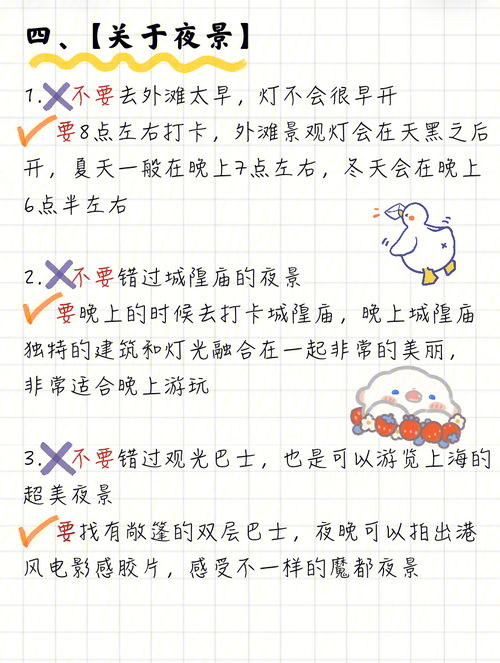 四、【关于夜景】
1.不要去外滩太早，灯不会很早开
要8点左右打卡，外滩景观灯会在天黑之后
开，夏天一般在晚上7点左右，冬天会在晚上
6点半左右
2.不要错过城隍庙的夜景
要晚上的时候去打卡城隍庙，晚上城隍庙
独特的建筑和灯光融合在一起非常的美丽，
非常适合晚上游玩
3.不要错过观光巴士，也是可以游览上海的
超美夜景
要找有敞篷的双层巴士，夜晚可以拍出港
风电影感胶片，感受不一样的魔都夜景